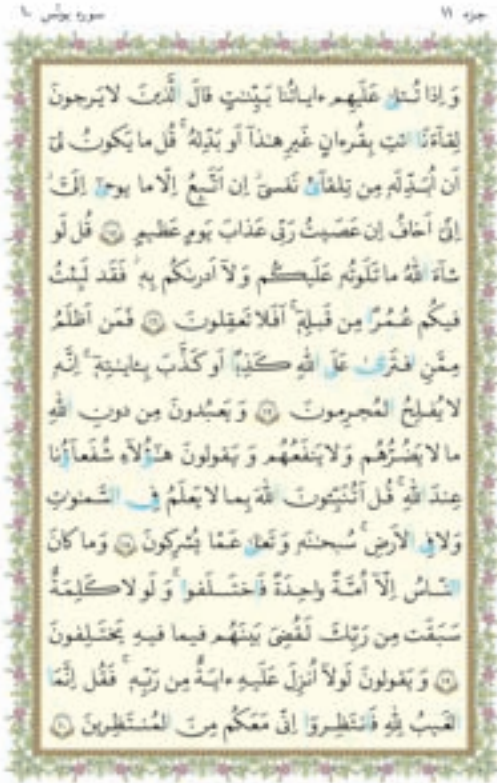 جزء ۱۱
سوره يونُس ۱۰
وَ اِذا تُتلىٰ عَلَيهِم ءاياتُنا بَيِّنٰتٍ قالَ الَّذينَ لايَرجونَ
لِقاۤءَنَا ائتِ بِقُرءانٍ غَيرِ هٰذاۤ اَو بَدِّلهُ ۚ قُل ما يَكونُ لىۤ
اَن اُبَدِّلَهٗ مِن تِلقاۤئِ نَفسىۤ ۖ اِن اَتَّبِعُ اِلّا ما يوحىٰۤ اِلَىَّ ۖ
اِنّىۤ اَخافُ اِن عَصَيتُ رَبّى عَذابَ يَومٍ عَظيمٍ ﴿۱۵﴾ قُل لَو
شاۤءَ اللّٰهُ ما تَلَوتُهٗ عَلَيكُم وَ لاۤ اَدرىٰكُم بِهٖ ۖ فَقَد لَبِثتُ
فيكُم عُمُرًا مِن قَبلِهٖۤ ۚ اَفَلا تَعقِلونَ ﴿۱۶﴾ فَمَن اَظلَمُ
مِمَّنِ افتَرىٰ عَلَى اللّٰهِ كَذِبًا اَو كَذَّبَ بِـٔايٰتِهٖۤ ۚ اِنَّهٗ
لايُفلِحُ المُجرِمونَ ﴿۱۷﴾ وَ يَعبُدونَ مِن دونِ اللّٰهِ
ما لايَضُرُّهُم وَ لايَنفَعُهُم وَ يَقولونَ هٰۤؤُلاۤءِ شُفَعاۤؤُنا
عِندَ اللّٰهِ ۚ قُل اَتُنَبِّئونَ اللّٰهَ بِما لايَعلَمُ فِى السَّمٰوٰتِ
وَ لا فِى الاَرضِ ۚ سُبحٰنَهٗ وَ تَعالىٰ عَمّا يُشرِكونَ ﴿۱۸﴾ وَ ما كانَ
النّاسُ اِلّاۤ اُمَّةً واحِدَةً فَاختَلَفوا ۚ وَ لَو لا كَلِمَةٌ
سَبَقَت مِن رَبِّكَ لَقُضِىَ بَينَهُم فيما فيهِ يَختَلِفونَ
﴿۱۹﴾ وَ يَقولونَ لَولاۤ اُنزِلَ عَلَيهِ ءايَةٌ مِن رَبِّهٖ ۖ فَقُل اِنَّمَا
الغَيبُ لِلّٰهِ فَانتَظِروۤا اِنّى مَعَكُم مِنَ المُنتَظِرينَ ﴿۲۰﴾